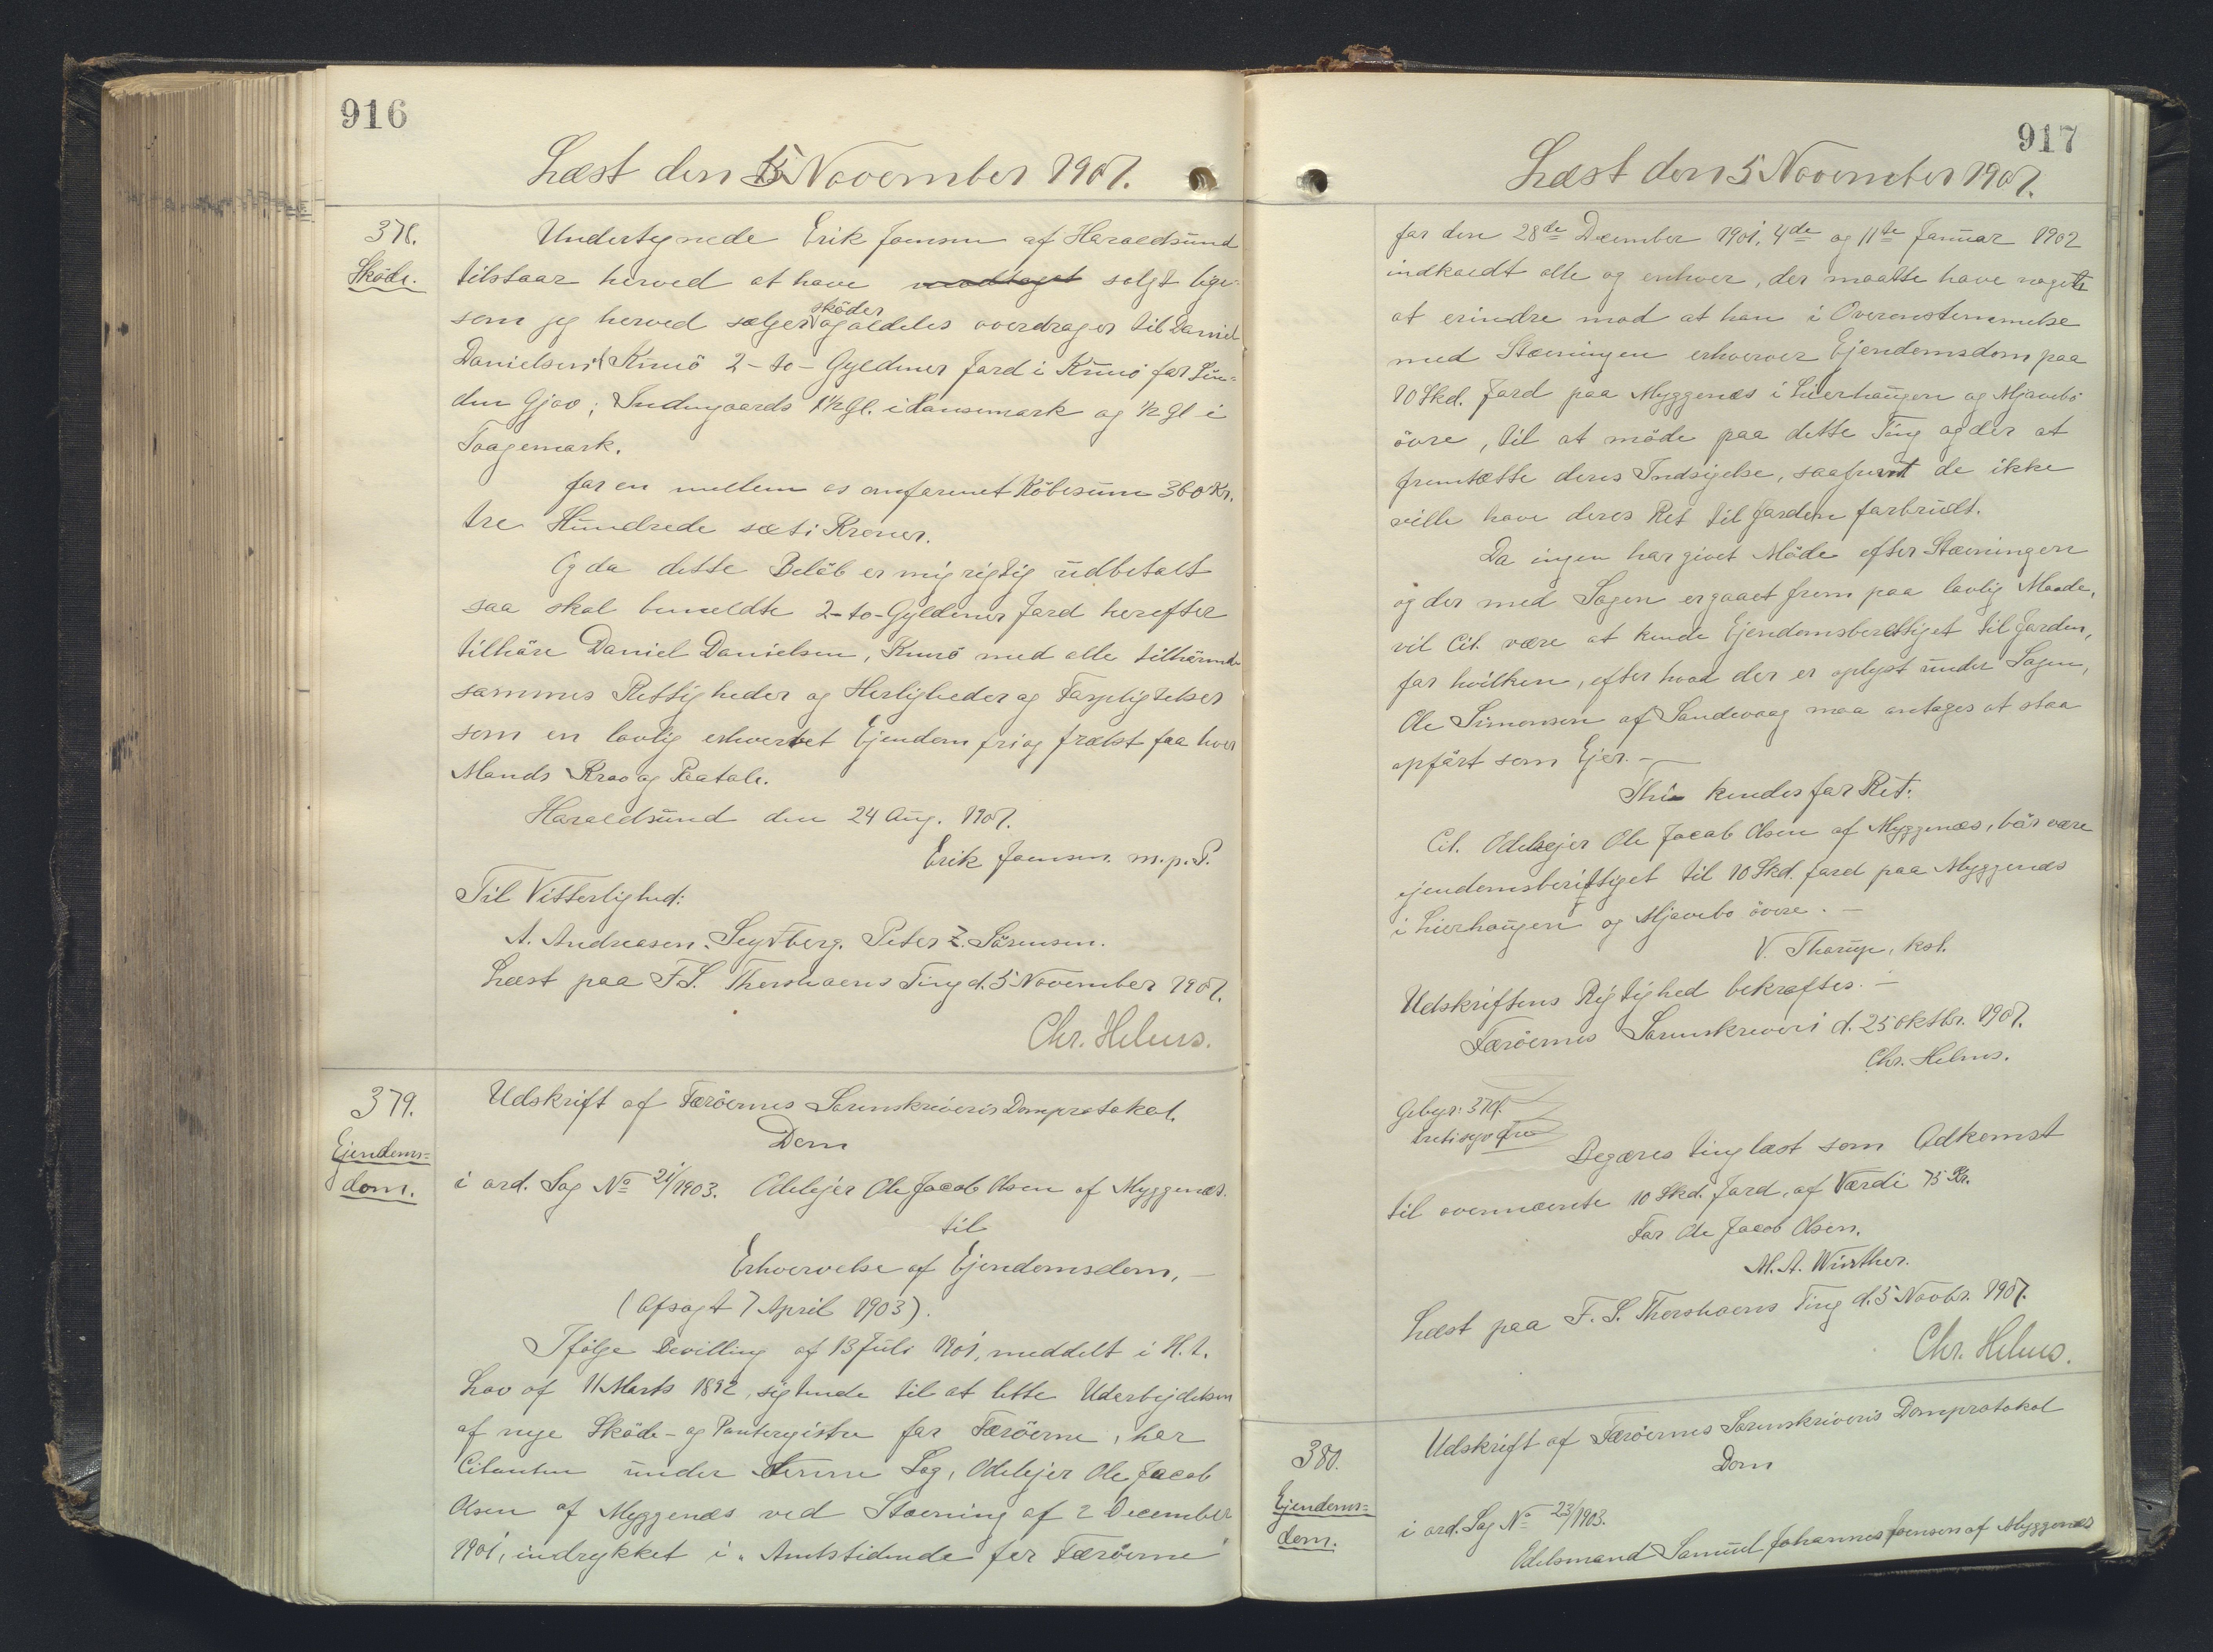 916
Læst den 5 November 1907.
378.
Sköde.
Undertegnede Erik Joensen af Haraldsund
tilstaar herved at have modtaget solgt lige-
som jeg herved sælger skøder og aldeles overdrager til Daniel
Danielsen i Kunö 2-to-Gyldener Jord i Kunö for Sün-
den Gjov; Indengaards 1½ Gl. i Hansemark og ½ Gl i
Toagemark.
for en mellem os omforenet Köbesum 360 Kr.
tre Hundrede sæti Kroner.
Og da dette Belöb er mig rigtig udbetalt
saa skal bemeldte 2-to-Gyldener Jord herefter
tilhöre Daniel Danielsen, Kunö med alle tilhörende
sammes Rettigheder og Herligheder og Forpligtelser
som en lovlig erhvervet Ejendom fri og frælst for hver
Mands Krav og Paatale.
Haraldsund den 24 Aug. 1907.
Erik Joensen. m.p.P.
Til Vitterlighed:
A. Andreasen. Seytberg. Peter Z. Sörensen.
Læst paa F.S. Thorshavns Ting d. 5 November 1907.
Chr. Helms.
379.
Ejendoms-
dom.
Udskrift af Færöernes Sorenskriveris Domprotokol.
Dom
i ord. Sag No 21/1903. Odelejer Ole Jacob Olsen af Myggenæs.
til
Erhvervelse af Ejendomsdom,
(Afsagt 7 April 1903).
Ifölge Bevilling af 13 Juli 1901, meddelt i H. t.
Lov af 11 Marts 1892, sigtende til at lette Udarbejdelsen
af nye Sköde- og Panteregistre for Færöerne, har
Citanten under denne Sag, Odelejer Ole Jacob
Olsen af Myggenæs ved Stævning af 2 December
1901, indrykket i "Amtstidende for Færöerne"
917
Læst den 5 November 1907.
for den 28de December 1901, 4de og 11te Januar 1902
indkaldt alle og enhver, der maatte have noget
at erindre mod at han i Overenstemmelse
med Stævningen erhverver Ejendomsdom paa
10 Skd. Jord paa Myggenæs i Lierhaugen og Mjavebö
övre, til at möde paa dette Ting og der at
fremsætte deres Indsigelse, saafremt de ikke
ville have deres Ret til Jorden forbrudt.
Da ingen har givet Möde efter Stævningen
og der med Sagen er gaaet frem paa lovlig Maade,
vil Cit. være at kende Ejendomsberettiget til Jorden,
for hvilken, efter hvad der er oplyst under Sagen,
Ole Simonsen af Sandevaag maa antages at staa
opfört som Ejer.
Thi kendes for Ret:
Cit. Odelsejer Ole Jacob Olsen af Myggenæs, bör være
ejendomsberettiget til 10 Skd. Jord paa Myggenæs
i Lierhaugen og Mjavebo övre.
V. Thorup, kst.
Udskriftens Rigtighed bekræftes.
Færöernes Sorenskriveri d. 25 Oktbr. 1907.
Chr. Helms.
Begæres tinglæst som Adkomst
til ovennævnte 10 Skd. Jord, af Værdi 75 Kr.
For Ole Jacob Olsen.
M. A. Winther.
Læst paa F. S. Thorshavns Ting d. 5 Novbr. 1907.
Chr. Helms.
380.
Ejendoms-
dom.
Udskrift af Færöernes Sorenskriveris Domprotokol
Dom
i ord. Sag No 23/1903.
Odelsmand Samuel Johannes Joensen af Myggenæs